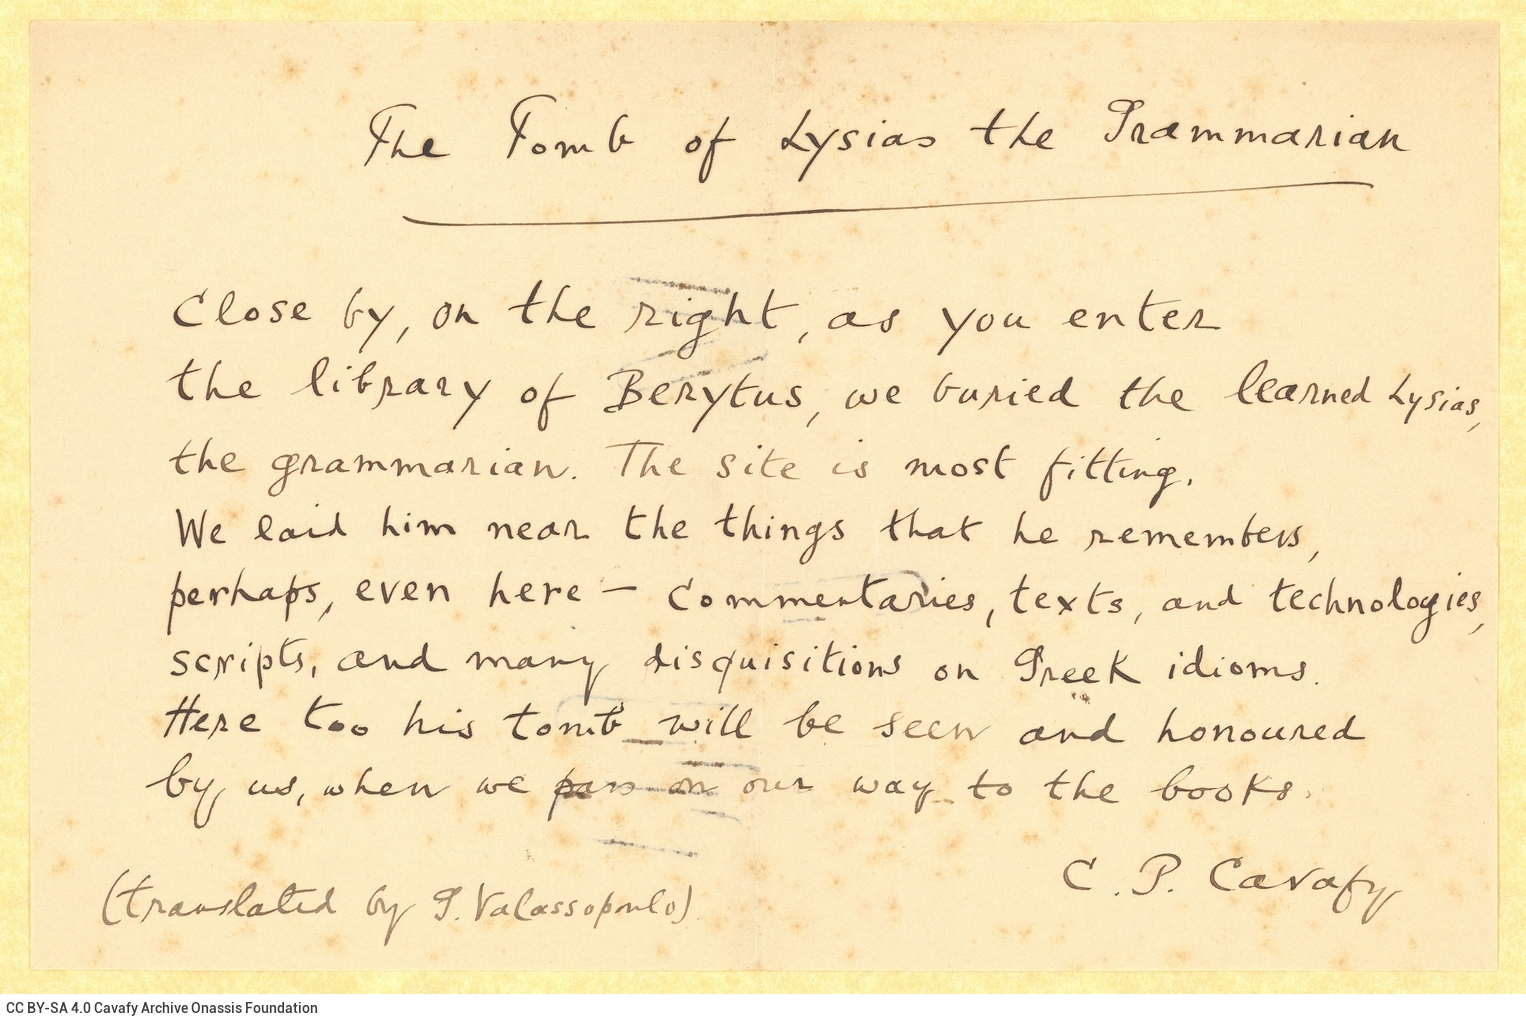 The Tomb of Lysias the Grammarian
Close by, on the right, as you enter
the library of Berytus, we buried the learned Lysias,
the grammarian. The site is most fitting.
We laid him near the things that he remembers,
perhaps, even here — commentaries, texts, and technologies,
scripts, and many disquisitions on Greek idioms.
Here too his tomb will be seen and honoured
by us, when we pass on our way to the books.
C. P. Cavafy
(translated by G. Valassopoulo)
CC BY-SA 4.0 Cavafy Archive Onassis Foundation